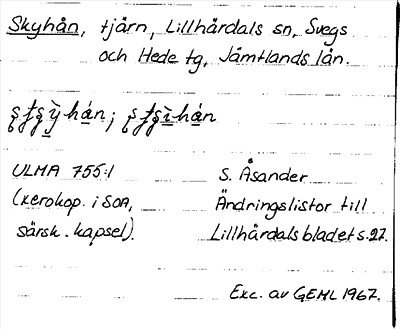 Skyhån, tjärn, Lillhärdals sn, Svegs
och Hede tg, Jämtlands län.
ULMA 755:1
(xerokop. i SOA,
särsk. kapsel).
S. Åsander
Ändringslistor till
Lillhärdalsbladet s. 27.
Exc. av GEHL 1967.